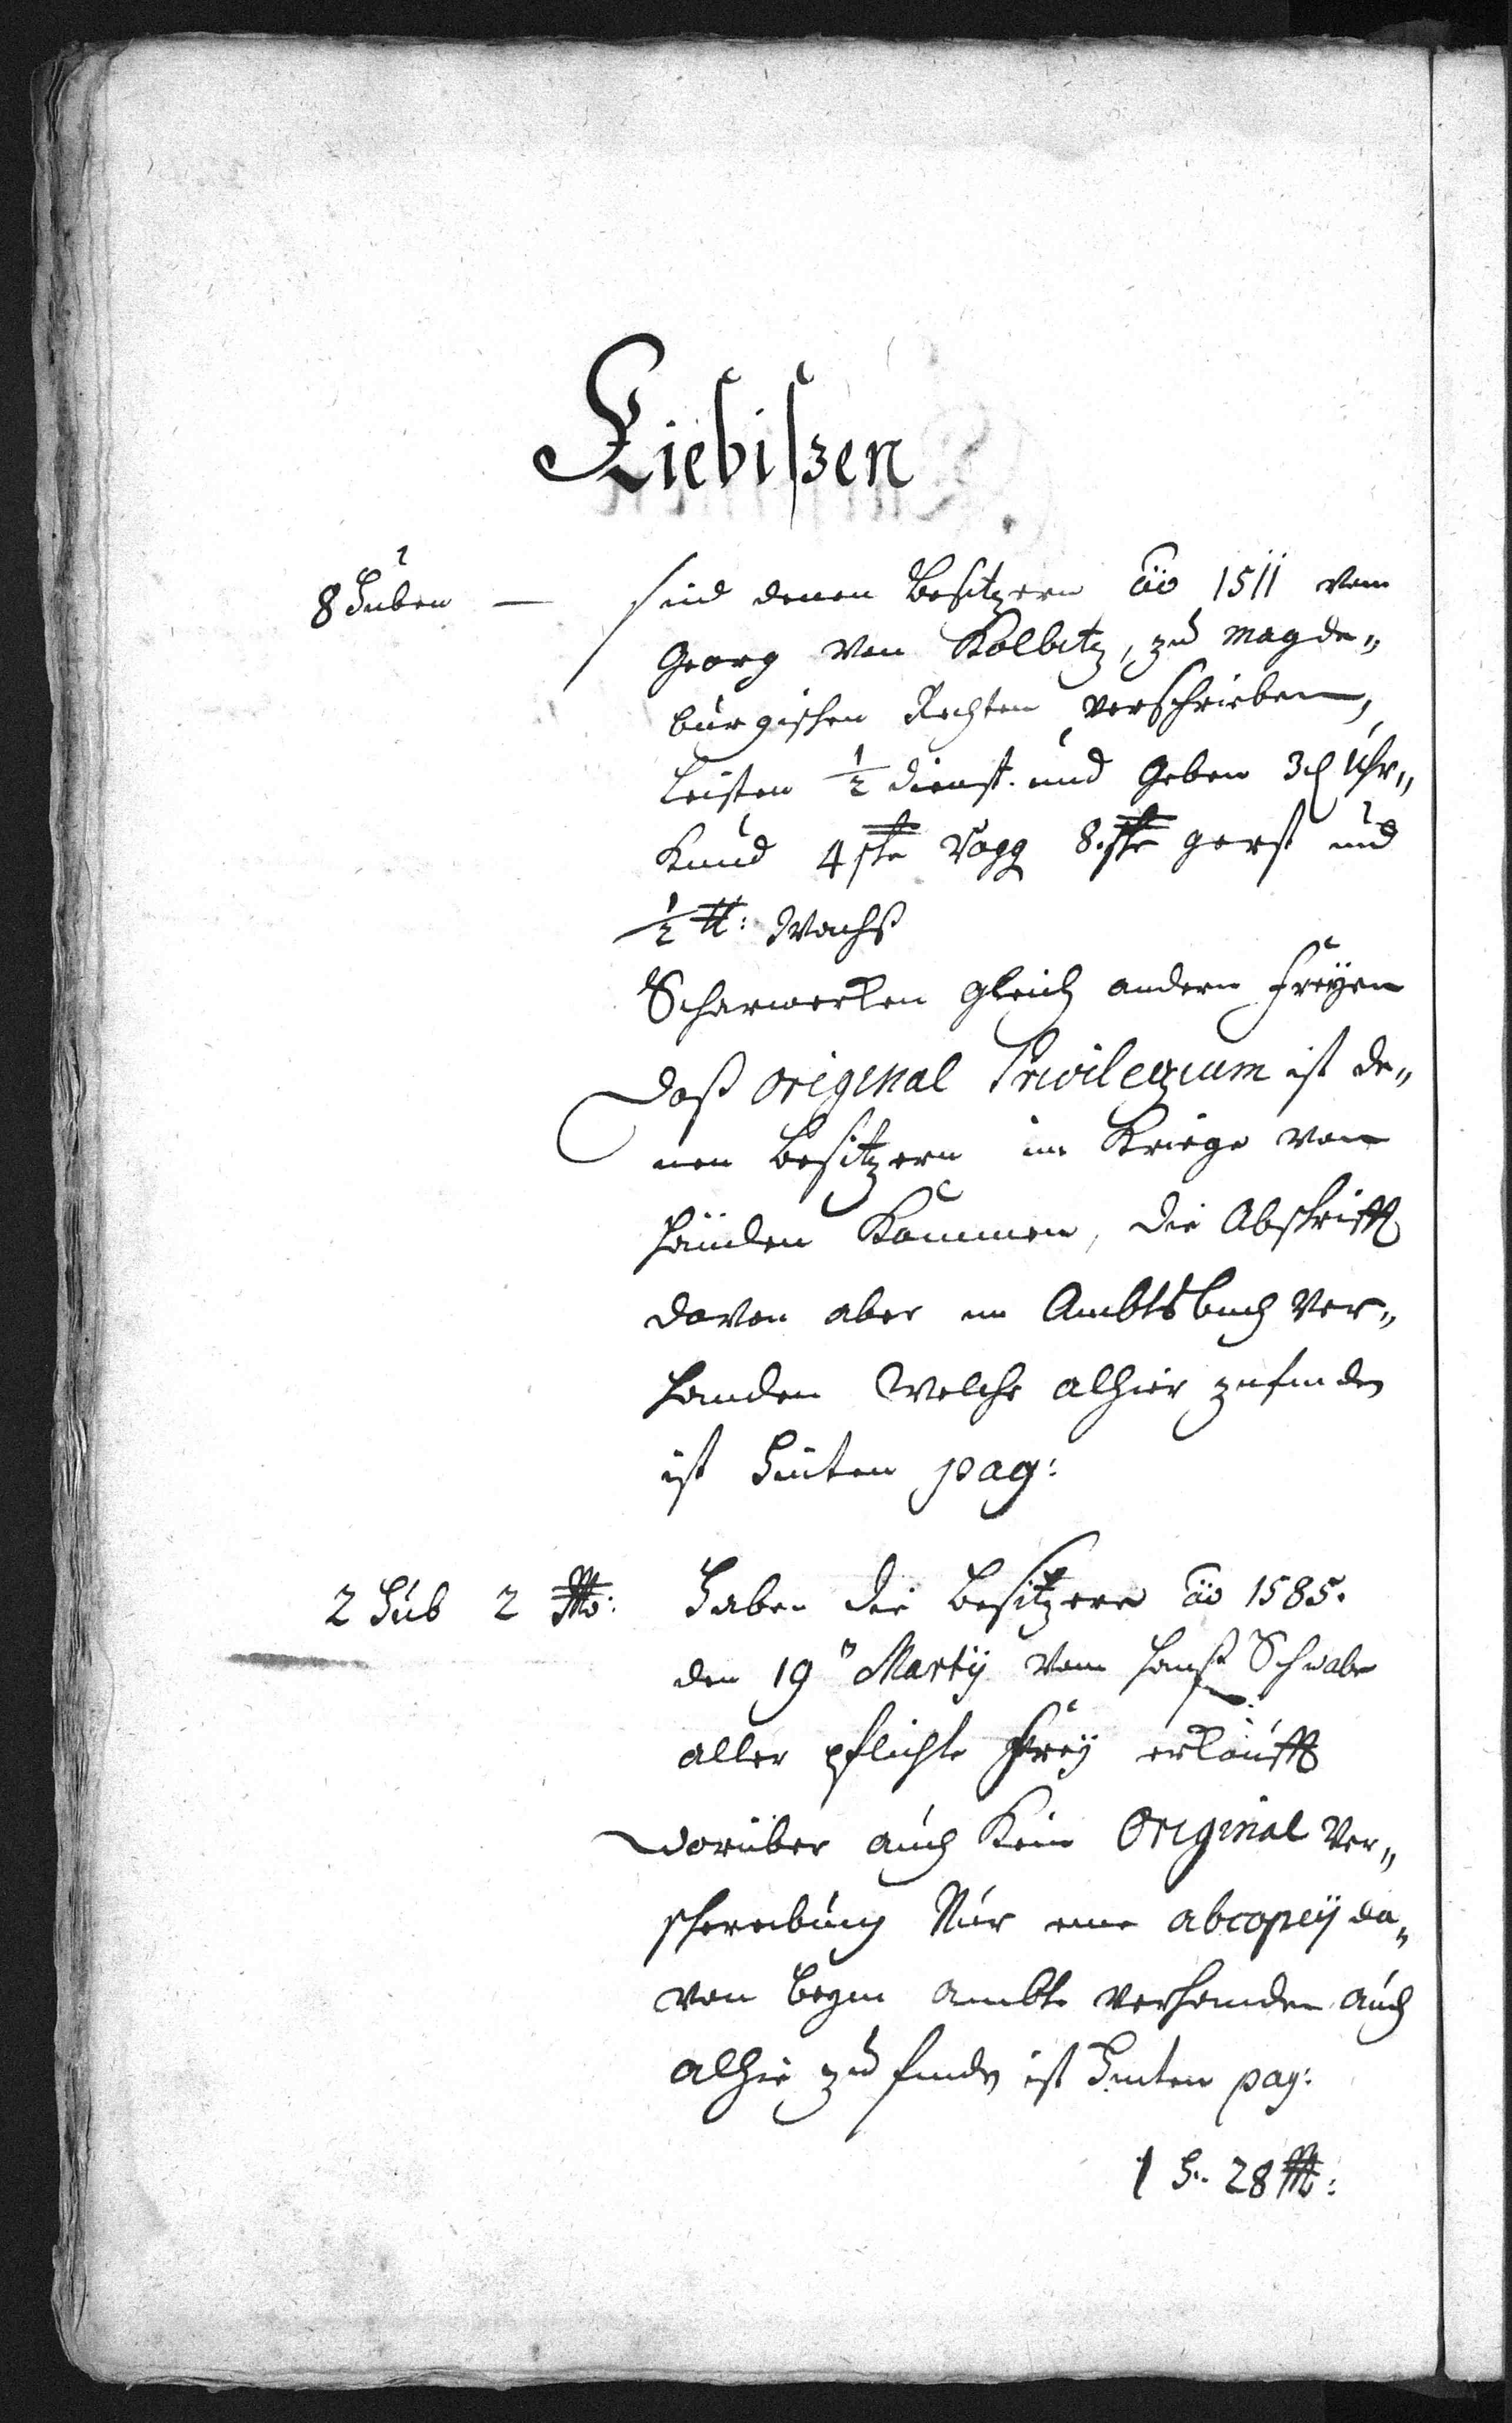 Liebiszen
8 Huben — sind denen Besitzern aō 1511 vom
Georg von Kolbitz, zu Magde„
burgischen Rechten verschrieben,
Leisten ½ dienst. und Geben 3 ₰ Uhr„
Kund 4 sche Rogg 8. sche gerst und
½ ℔: Wachs
Scharwerken gleich andern Freyen
Daß original Privilegium ist de„
nen Besitzern im Kriege von
Händen Kommen, die Abschrifft
davon aber im Ambtsbuch Ver„
handen Welche alhier zufinden
ist Hinten pag:
2 Hub 2 Mo: Haben die Besitzere aō 1585.
den 19 Martij vom Hanß Schwabe
aller pflichte frey erkaufft
worüber auch Kein Original Ver„
schreibung Nur eine abcopeij da„
von beym ambte verhanden auch
alhie zu finden ist Hinten pag:
1 H. 28 Mo: